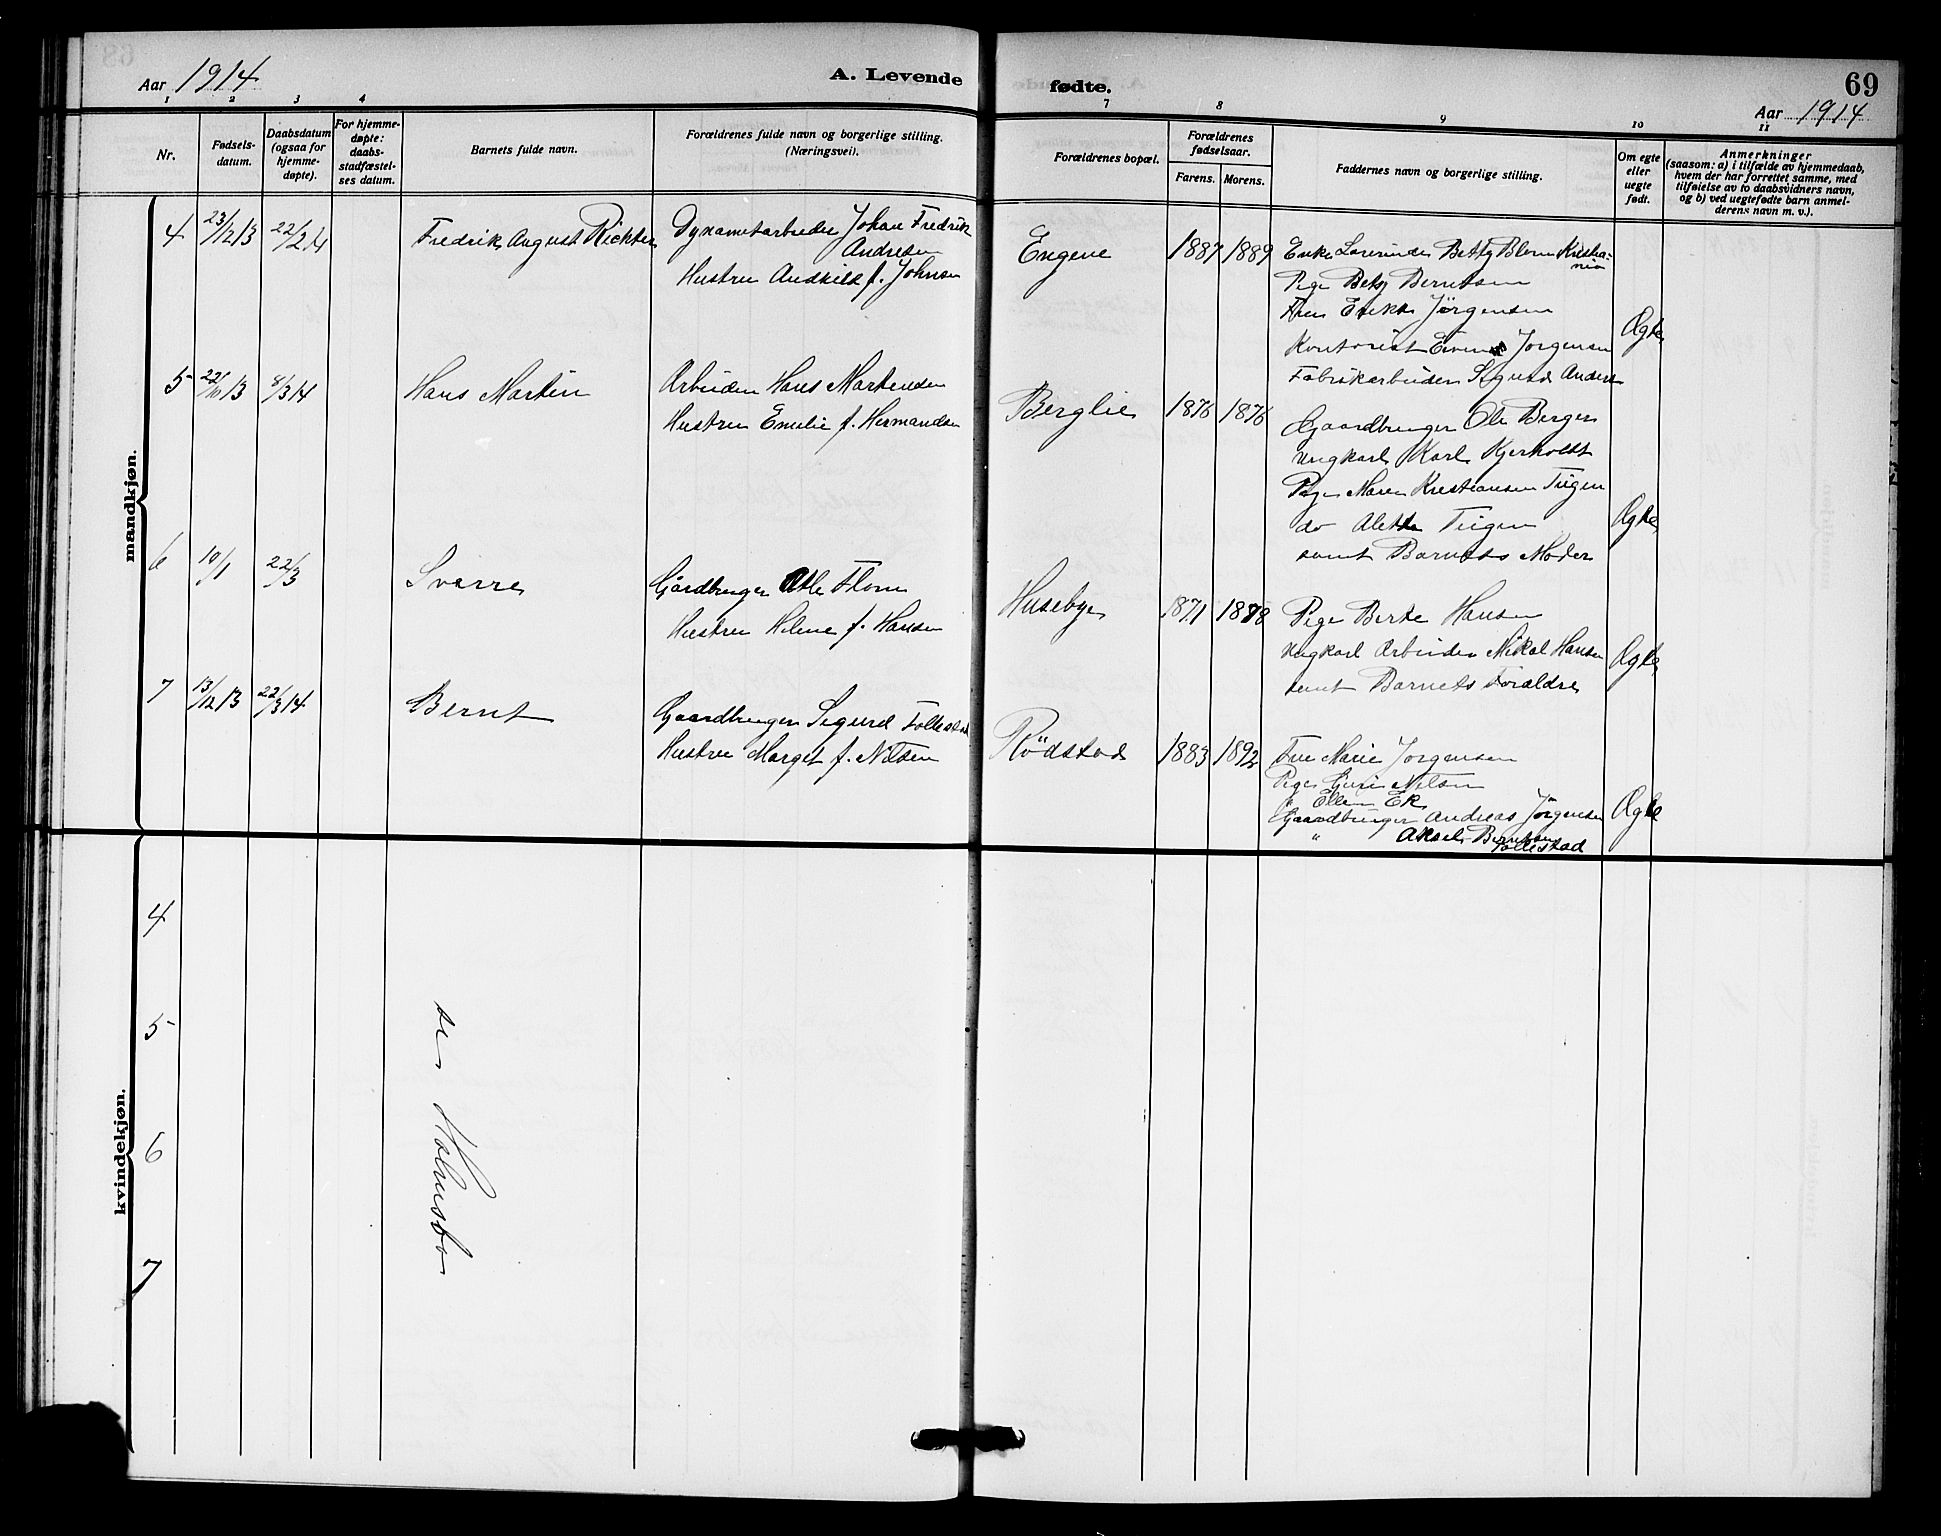 Aar 1914
A. Levende
fødte.
69
Aar 1914
1 2 3 4 7 8 9 10 11
Nr.
Fødsels-
datum.
Daabsdatum
(ogsaa for
hjemme-
døpte).
For hjemme-
døpte:
daabs-
stadfæstel-
ses datum.
Barnets fulde navn.
Forældrenes fulde navn og borgerlige stilling.
(Næringsvei).
Forældrenes bopæl.
Forældrenes
fødselsaar.
Farens. Morens.
Faddernes navn og borgerlige stilling.
Om egte
eller
uegte
født.
Anmerkninger
(saasom: a) i tilfælde av hjemmedaab,
hvem der har forrettet samme, med
tilføielse av to daabsvidners navn,
og b) ved uegtefødte barn anmel-
derens navn m. v.).
mandkjøn.
4 23/12 13 22/2 14 Fredrik August Richter
Dynamitarbeider Johan Fredrik
Andresen
Hustru f. Johnsen
Engene 1887 1889
Enke Betty Blom Kristia-
nia
Pige Betsy Berntsen
Fru Jörgensen
Kontorist Jörgensen
Fabrikarbeider Sigurd
Ægte
5 13 8/3 14 Hans Martin
Arbeider Hans Martensen
Hustru Emilie f. Hermandsen
Berglie 1876 1876
Gaardbruger Ole Berger
Ungkarl Karl Kjerholdt
Pige Maren Kristiansen Teigen
do Alette Teigen
samt Barnets Moder
Ægte
6 10/1 22/3 Sverre
Gårdbruger Flom
Hustru Helene f. Hansen
Husebye 1871 1878
Pige Berte Hansen
Ungkarl Arbeider Nikal Hansen
samt Barnets Forældre
Ægte
7 13/12 13 22/3 14 Bernt
Gaardbruger Sigurd Follestad
Hustru Marget f. Nilsen
Rödstad 1883 1892
Fru Marie Jorgensen
Pige Guri Nilsen
" Ellen Ek
Gaardbruger Andreas Jörgensen
" Aksel Berntsen
Follestad
Ægte
kvindekjøn.
4
5
6
7
se Holmsbo